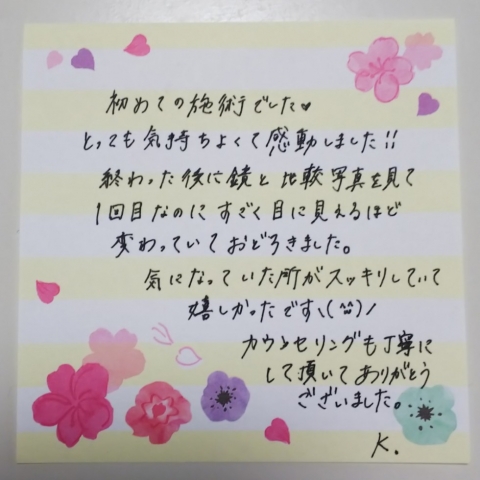 初めての施術でした♥
とっても気持ちよくて感動しました!!
終わった後に鏡と比較写真を見て
1回目なのにすごく目に見えるほど
変わっていておどろきました。
気になっていた所がスッキリしていて
嬉しかったです\(^^)/
カウンセリングも丁寧に
して頂いてありがとう
ございました。
K.